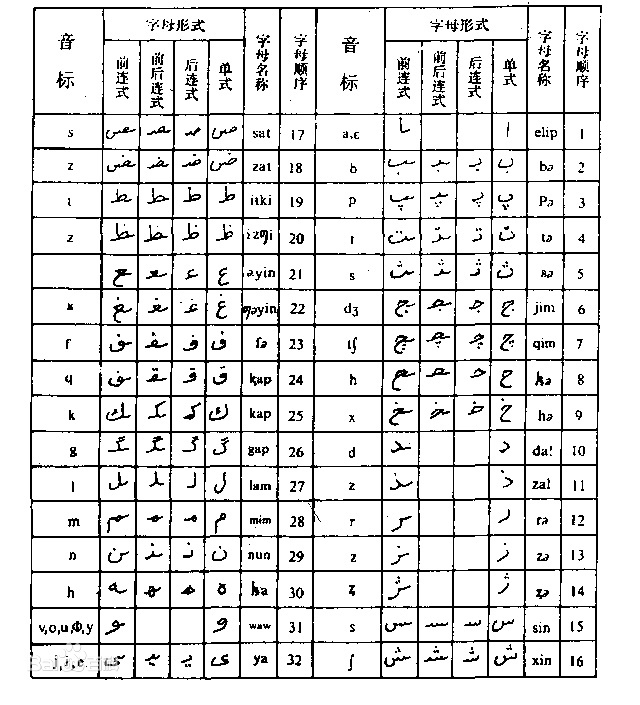 音标 字母形式 字母名称 字母顺序 音标 字母形式 字母名称 字母顺序
前连式 前后连式 后连式 单式 前连式 前后连式 后连式 单式
s ـص ـصـ صـ ص sat 17 a,ɛ ـا ا elip 1
z ـض ـضـ ضـ ض zat 18 b ـب ـبـ بـ ب bə 2
t ـط ـطـ طـ ط itki 19 p ـپ ـپـ پـ پ pə 3
z ـظ ـظـ ظـ ظ 20 t ـت ـتـ تـ ت tə 4
ـع ـعـ عـ ع əyin 21 s ـث ـثـ ثـ ث sə 5
ʁ ـغ ـغـ غـ غ ƣəyin 22 dʒ ـج ـجـ جـ ج jim 6
f ـف ـفـ فـ ف fə 23 tʃ ـچ ـچـ چـ چ qim 7
q ـق ـقـ قـ ق ⱪap 24 h ـح ـحـ حـ ح ⱨə 8
k ـك ـكـ كـ ك kap 25 x ـخ ـخـ خـ خ hə 9
g ـگ ـگـ گـ گ gap 26 d ـد د dal 10
l ـل ـلـ لـ ل lam 27 z ـذ ذ zal 11
m ـم ـمـ مـ م mim 28 r ـر ر rə 12
n ـن ـنـ نـ ن nun 29 z ـز ز zə 13
h ـه ـهـ هـ ه ⱨa 30 ʒ ـژ ژ ⱬə 14
v,o,u,ø,y ـو و waw 31 s ـس ـسـ سـ س sin 15
j,i,e ـى ـيـ يـ ى ya 32 ʃ ـش ـشـ شـ ش xin 16